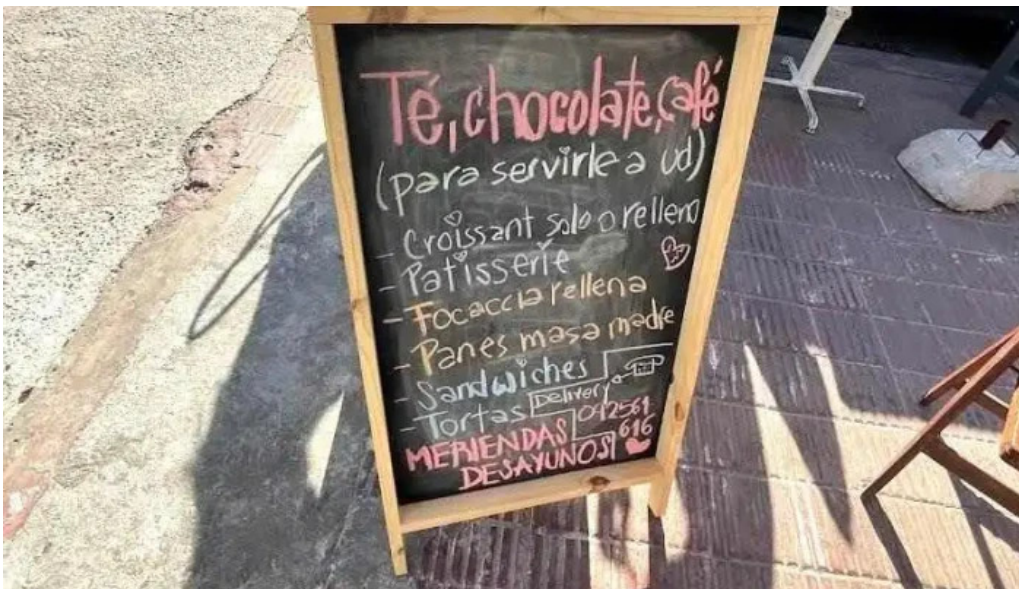 Té, chocolate, café
(para servirle a ud)
- Croissant solo o relleno
- Patisserie
- Focaccia rellena
- Panes masa madre
- Sandwiches
- Tortas
Delivery
092561
616
MERIENDAS
DESAYUNOS